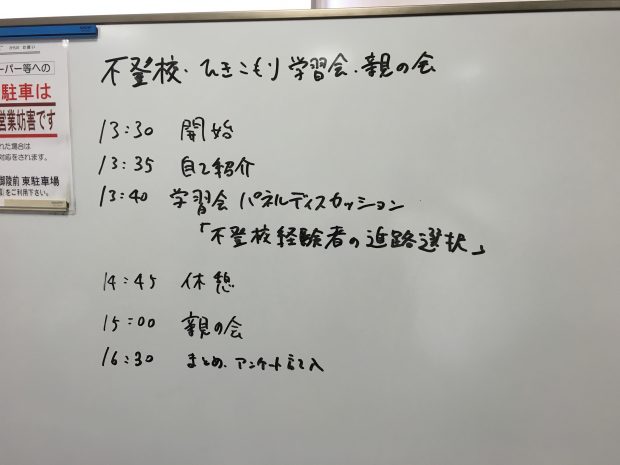 不登校・ひきこもり学習会・親の会
13:30 開始
13:35 自己紹介
13:40 学習会 パネルディスカッション
「不登校経験者の進路選択」
14:45 休憩
15:00 親の会
16:30 まとめ、アンケート記入
ーパー等への
駐車は
営業妨害です
れた場合は
対応をされます。
御陵前 東駐車場
をご利用下さい。